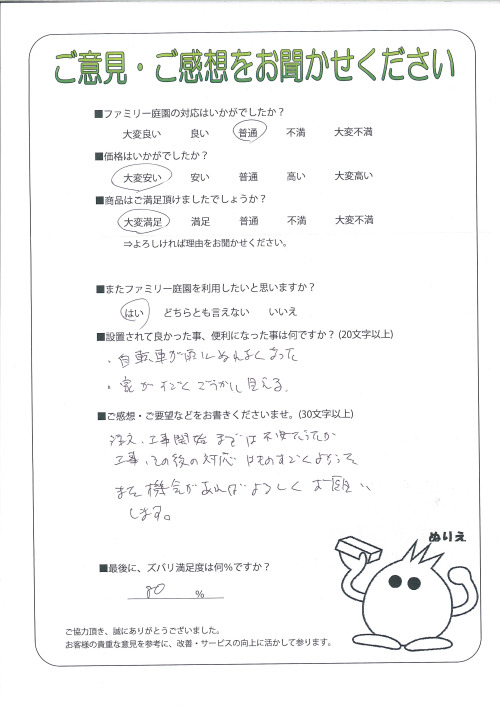 ご意見・ご感想をお聞かせください
■ファミリー庭園の対応はいかがでしたか？
大変良い 良い 普通 不満 大変不満
■価格はいかがでしたか？
大変安い 安い 普通 高い 大変高い
■商品はご満足頂けましたでしょうか？
大変満足 満足 普通 不満 大変不満
⇒よろしければ理由をお聞かせください。
■またファミリー庭園を利用したいと思いますか？
はい どちらとも言えない いいえ
■設置されて良かった事、便利になった事は何ですか？(20文字以上)
・自転車が雨にぬれなくなった
・家がすごくごうかに見える。
■ご感想・ご要望などをお書きくださいませ。(30文字以上)
注文、工事開始までは不安でしたが
工事、その後の対応はものすごくよかったで
また機会があればよろしくお願い
します。
ぬりえ
■最後に、ズバリ満足度は何％ですか？
80 ％
ご協力頂き、誠にありがとうございました。
お客様の貴重な意見を参考に、改善・サービスの向上に活かして参ります。